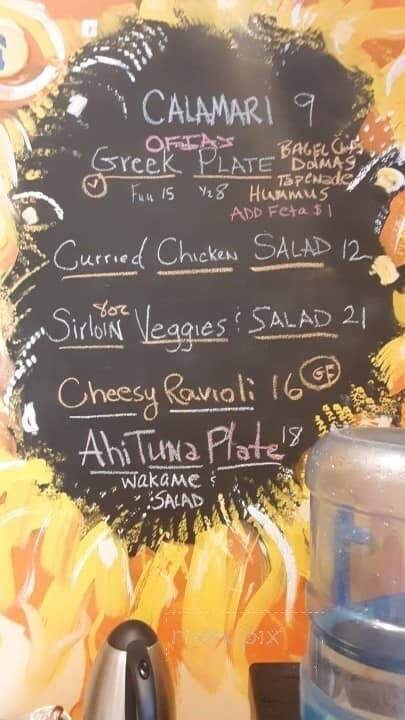 CALAMARI 9
OFIAS
Greek PLATE
BAGEL Chips
DOLMAS
TAPENADE
HUMMUS
V
Full 15 1/2 8
ADD Feta $1
Curried Chicken SALAD 12
8oz
Sirloin Veggies & SALAD 21
Cheesy Ravioli 16 GF
Ahi Tuna Plate 18
WAKAME &
SALAD